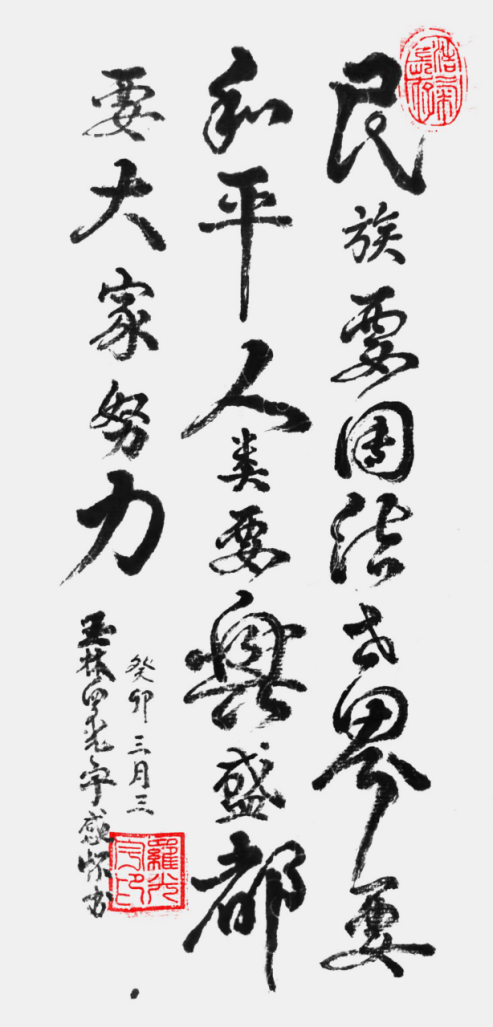 民族要团结世界要
和平人类要兴盛都
要大家努力
癸卯三月三
玉林罗光宇感怀书